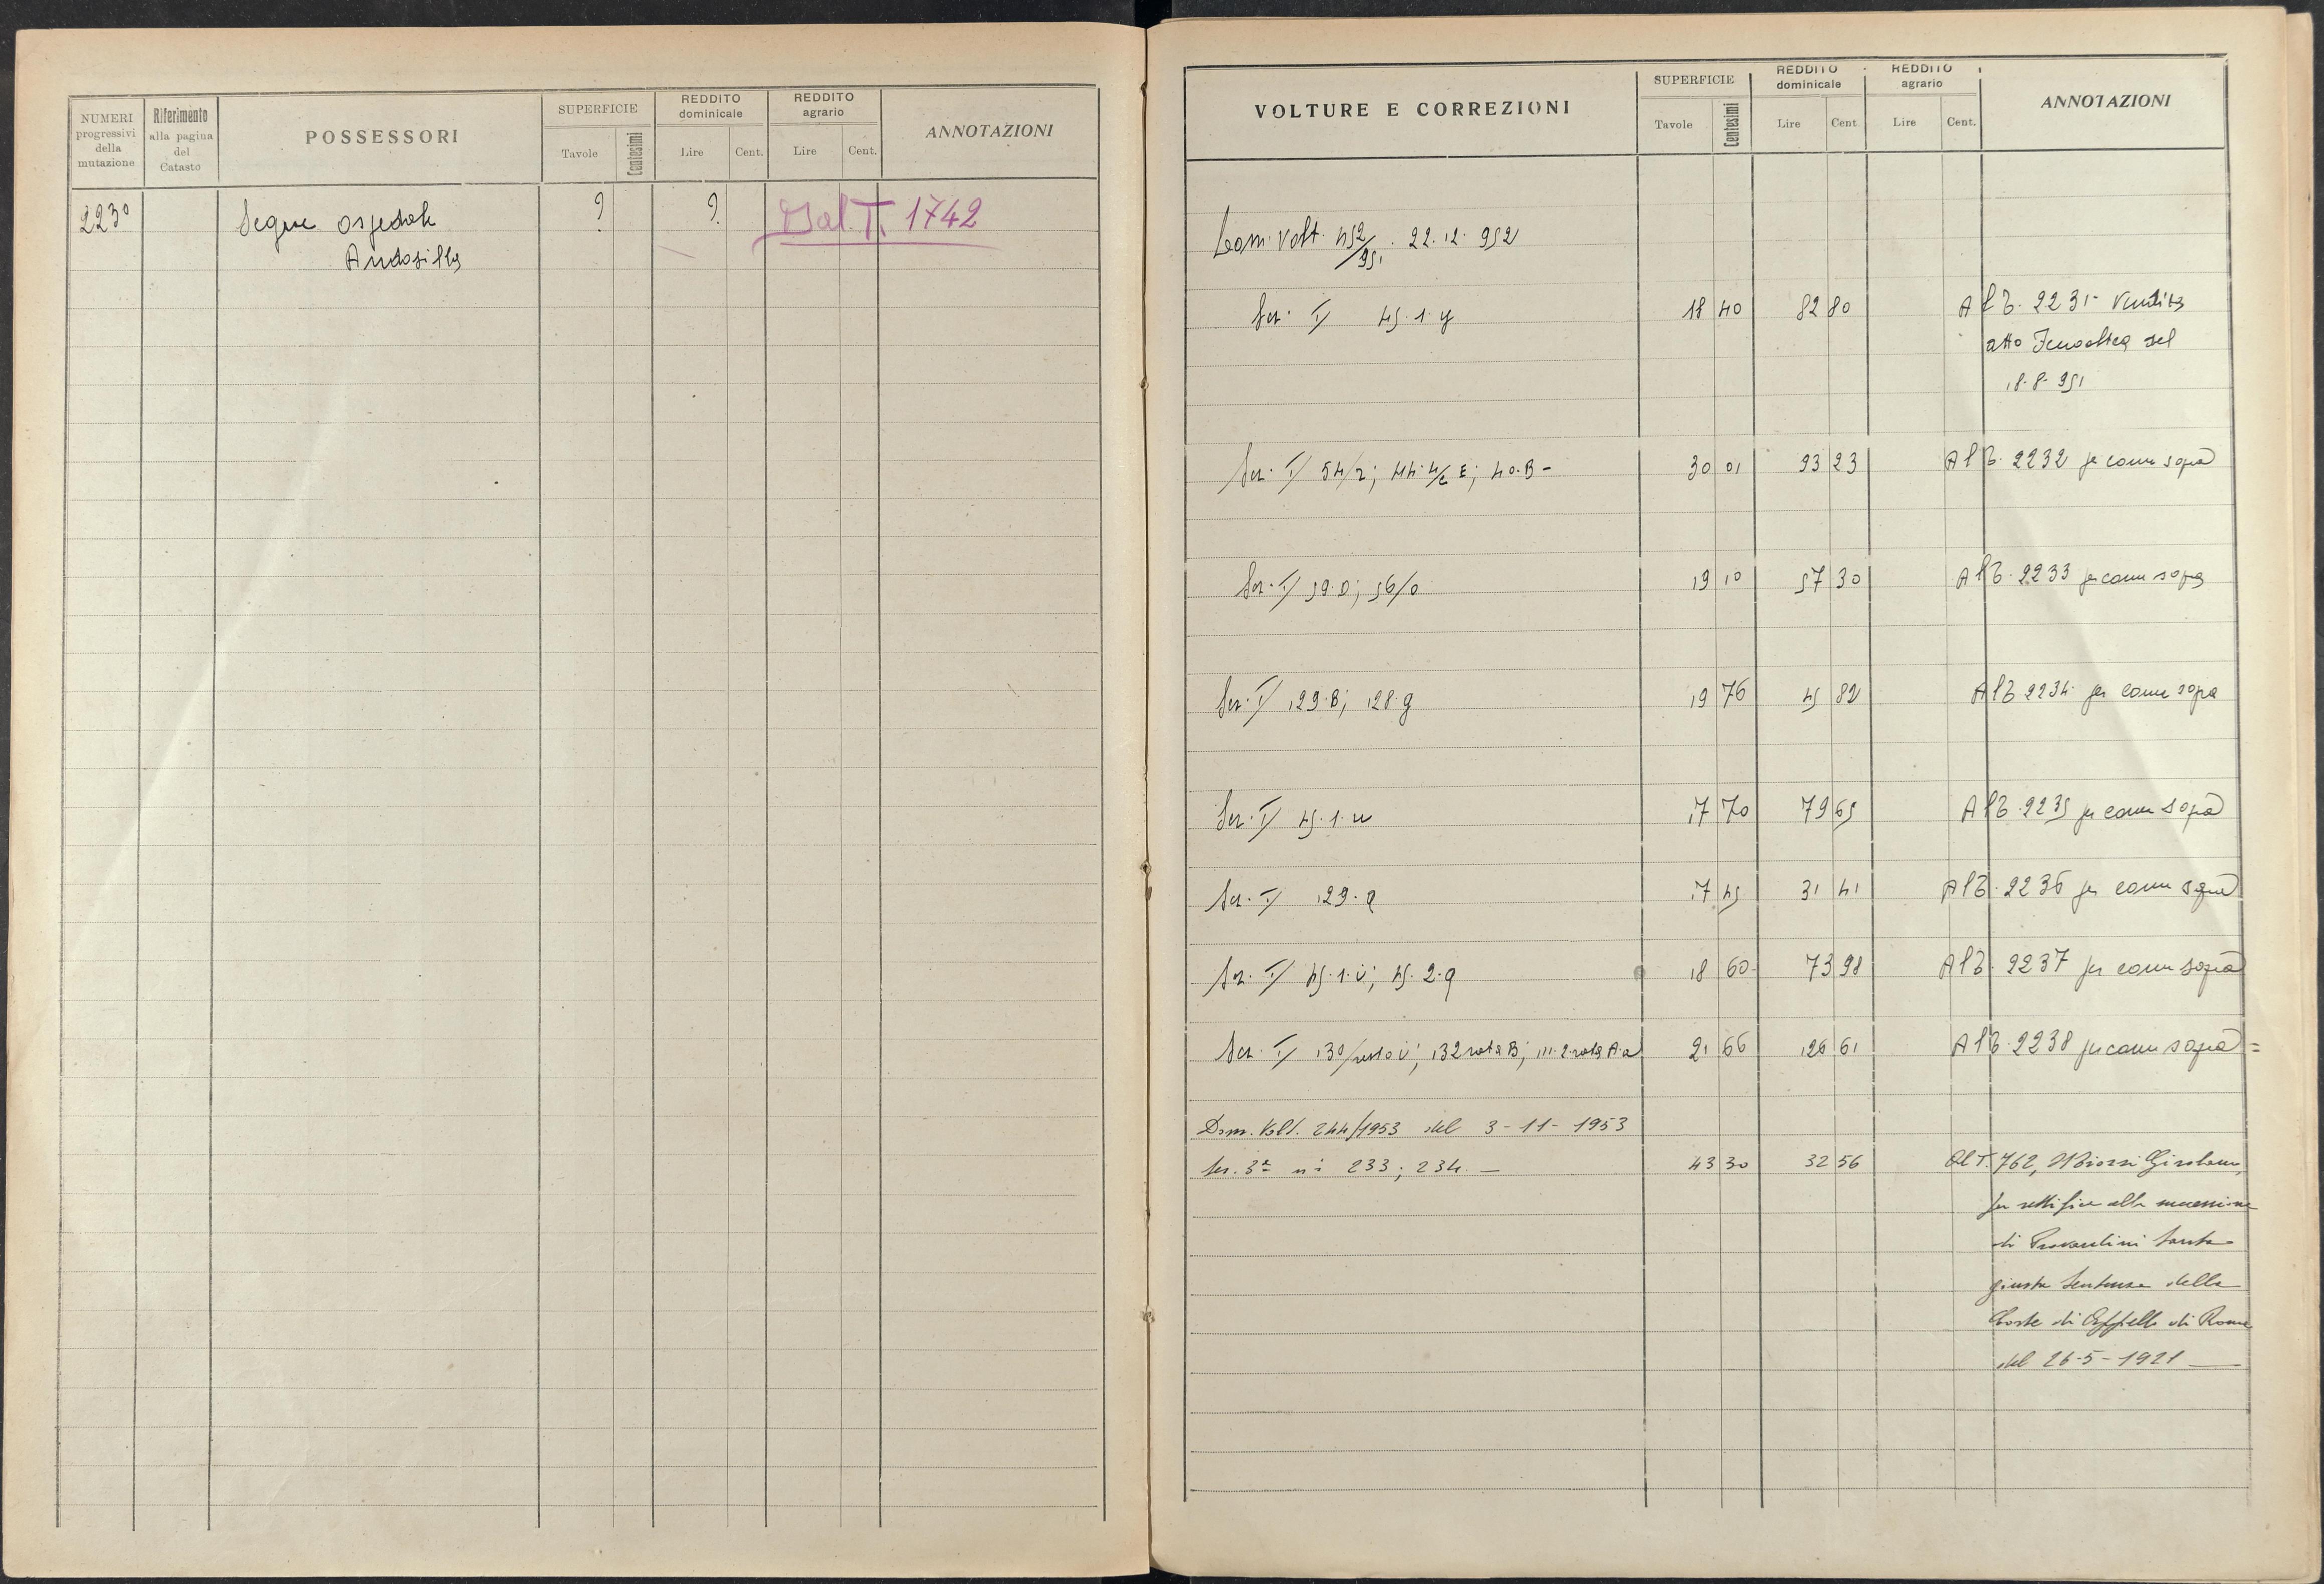 NUMERI progressivi della mutazione
Riferimento alla pagina del Catasto
POSSESSORI
SUPERFICIE
Tavole Centesimi
REDDITO dominicale
Lire Cent.
REDDITO agrario
Lire Cent.
ANNOTAZIONI
2230 Segue Ospedale ? ? Dal T. 1742
Andosilla
VOLTURE E CORREZIONI
SUPERFICIE
Tavole Centesimi
REDDITO dominicale
Lire Cent.
REDDITO agrario
Lire Cent.
ANNOTAZIONI
Dom. Volt. 452/951. 22.12.952
Sez. I/ 45.1.y 18 40 82 80 Al T. 2231- Vendita
atto del
18-8-951
Sez. I/ 54/2; 44.4/c E; 40.B- 30 01 93 23 Al T. 2232 per come sopra
Sez. I/ 59.D; 56/0 19 10 57 30 Al T. 2233 per come sopra
Sez. I/ 129.B; 128.g 19 76 45 82 Al T. 2234 per come sopra
Sez. I/ 45.1.u 17 70 79 65 Al T. 2235 per come sopra
Sez. I/ 129.a 17 45 31 41 Al T. 2236 per come sopra
Sez. I/ 45.1.i; 45.2.q 18 60 73 98 Al T. 2237 per come sopra
Sez. I/ 130/resto i; 132 rata B; 111.2 rata A.a 21 66 126 61 Al T. 2238 per come sopra =
Dom. Volt. 244/1953 del 3-11-1953
Sez. 3ª ni 233; 234. — 43 30 32 56 Al T. 762, Girolamo,
per rettifica alla successione
di Santa
giusta Sentenza della
Corte di Appello di Roma
del 26-5-1921 —